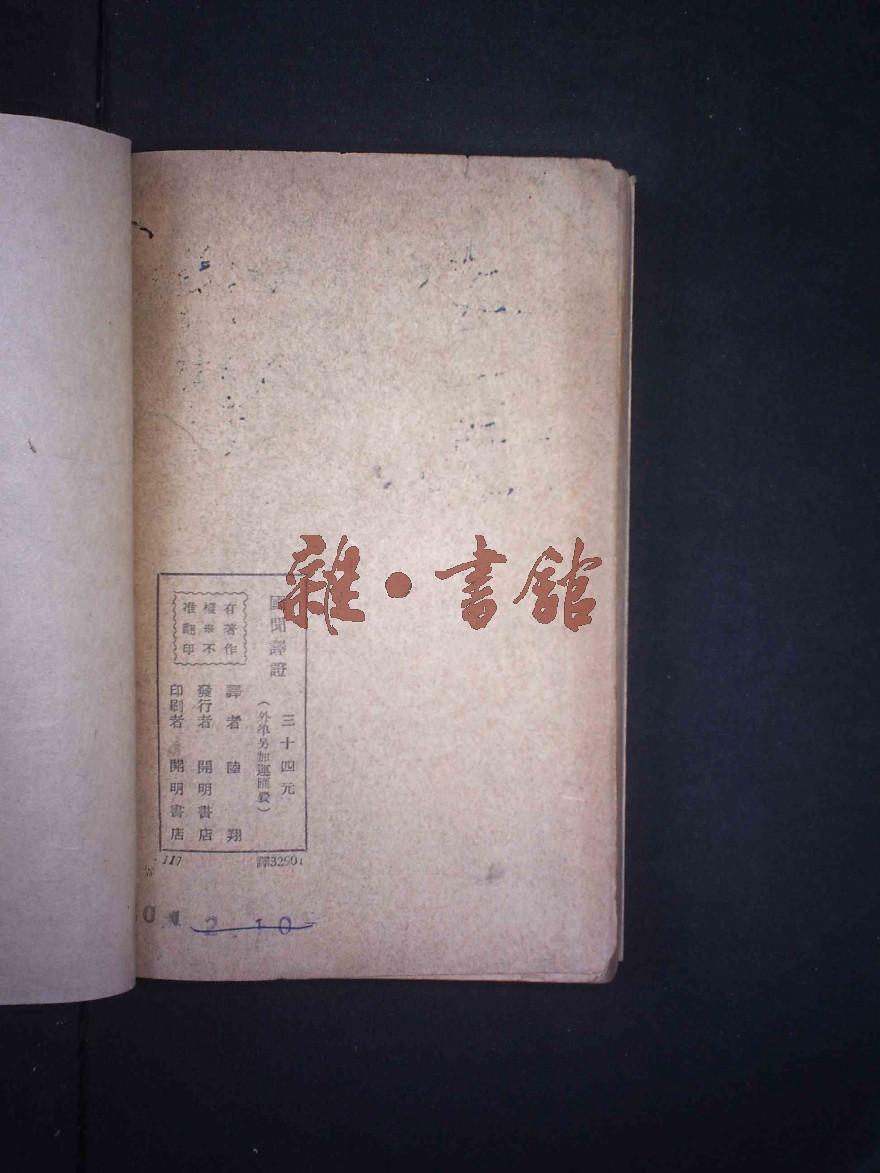 雜·書館
國聞譯證
三十四元
(外埠另加運匯費)
有著作
權※不
准翻印
譯者 陸翔
發行者 開明書店
印刷者 開明書店
117
譯32901
2 10